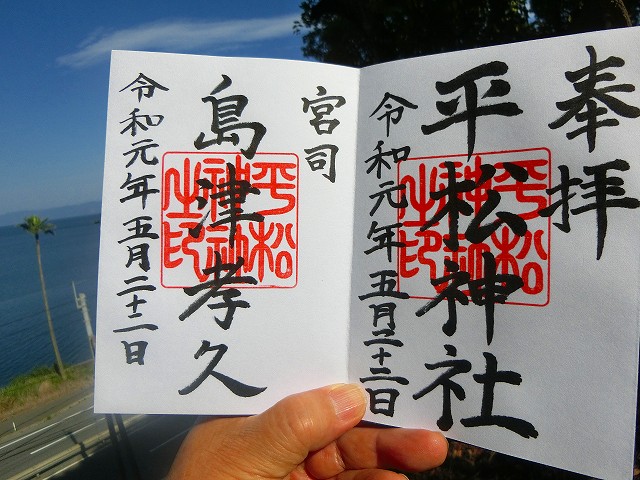 奉拝
平松神社
令和元年五月二十二日
宮司
島津孝久
令和元年五月二十二日
平松神社之印
平松神社之印